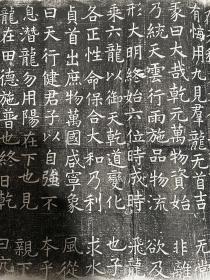 有悔用九見羣龍无首吉
彖曰大哉乾元萬物資始
乃統天雲行雨施品物流
形大明終始六位時成時
乘六龍以御天乾道變化
各正性命保合大和乃利
貞首出庶物萬國咸寧象
曰天行健君子以自強不
息潛龍勿用陽在下也見
龍在田德施普也終日乾
非離
欲及
飛龍
也子
求水
風從
本乎
親下
曰亢